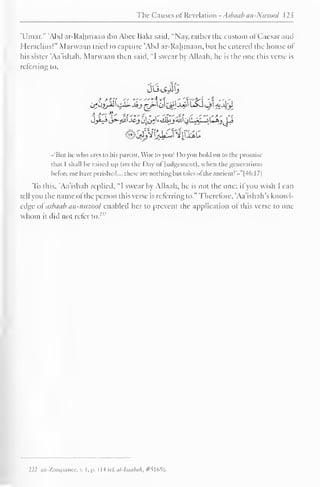 The Causes of Revelation - Asbaab an-Nuzool 123
'Umar." 'Abd ar-Rahmaan ibn Abee Bakr said, "Nay, rather the custom of Caesar and
Heraclius!" Marwaan tried to capture 'Abd ar-Rahmaan, but he entered the house of
his sister 'Aa'ishah. Marwaan then said, "I swear by Allaah, he is the one this verse is
referring to,
وَالَّذِي قَالَ
لِوَالِدَيْهِ أُفٍّ لَّكُمَا أَتَعِدَانِنِي أَنْ أُخْرَجَ وَقَدْ خَلَتِ الْقُرُونُ
مِن قَبْلِي وَهُمَا يَسْتَغِيثَانِ اللَّهَ وَيْلَكَ آمِنْ إِنَّ وَعْدَ اللَّهِ حَقٌّ فَيَقُولُ
مَا هَٰذَا إِلَّا أَسَاطِيرُ الْأَوَّلِينَ
"But he who says to his parent, 'Woe to you! Do you hold out to the promise
that I shall be raised up (on the Day of Judgement), when the generations
before me have perished.... these are nothing but tales of the ancient!'"[46:17]
To this, 'Aa'ishah replied, "I swear by Allaah, he is not the one; if you wish I can
tell you the name of the person this verse is referring to." Therefore, 'Aa'ishah's knowl-
edge of asbaab an-nuzool enabled her to prevent the application of this verse to one
whom it did not refer to.222
222 az-Zarqaanee, v. 1, p. 114 (cf. al-Isaabah, #5165).